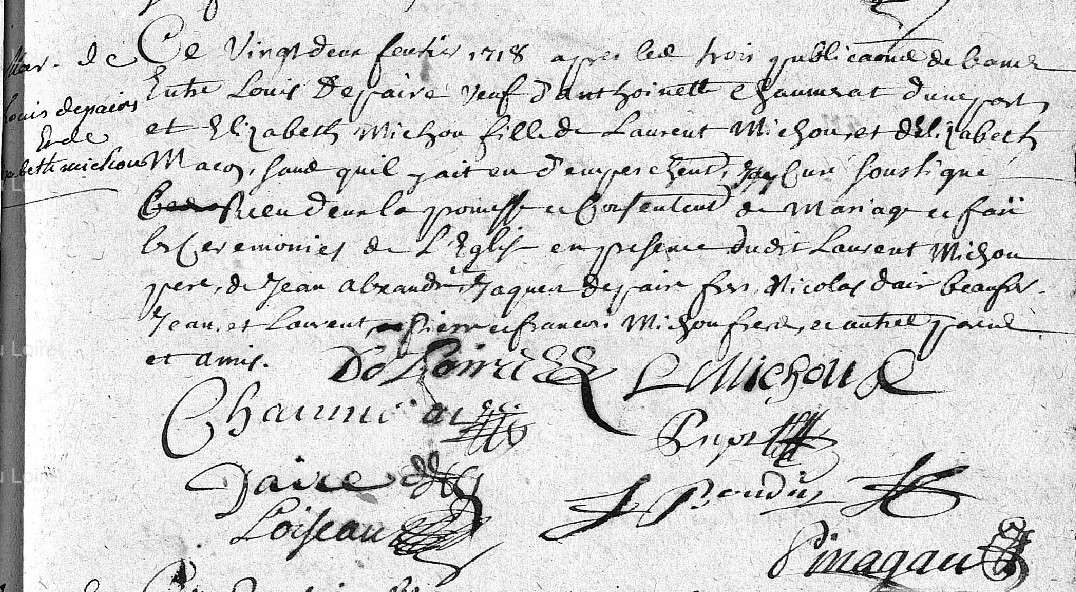 Mar. de
Louis depaire
Et de
Elizabeth michou
Ce Vingt deux feuvrier 1718 apres les trois publications de bancs
Entre Louis Depaire veuf d'anthoinette Chaumerat d'une part,
et Elizabeth Michou fille de Laurent Michou, et d'Elizabeth
Macos, sans quil y ait eu d'empeschent, Jay Curé soussigné
Receu d'eux la promesse et Consentent de Mariage et fait
les Ceremonies de L'Eglise en presence dudit Laurent Michou
pere, de Jean alexandre, Jaques depaire frere, Nicolas daire beaufr.
Jean, et Laurent, Pierre et francois Michou freres, et autres parens
et amis.
L Michou
Daire
Loiseau
Pinagau